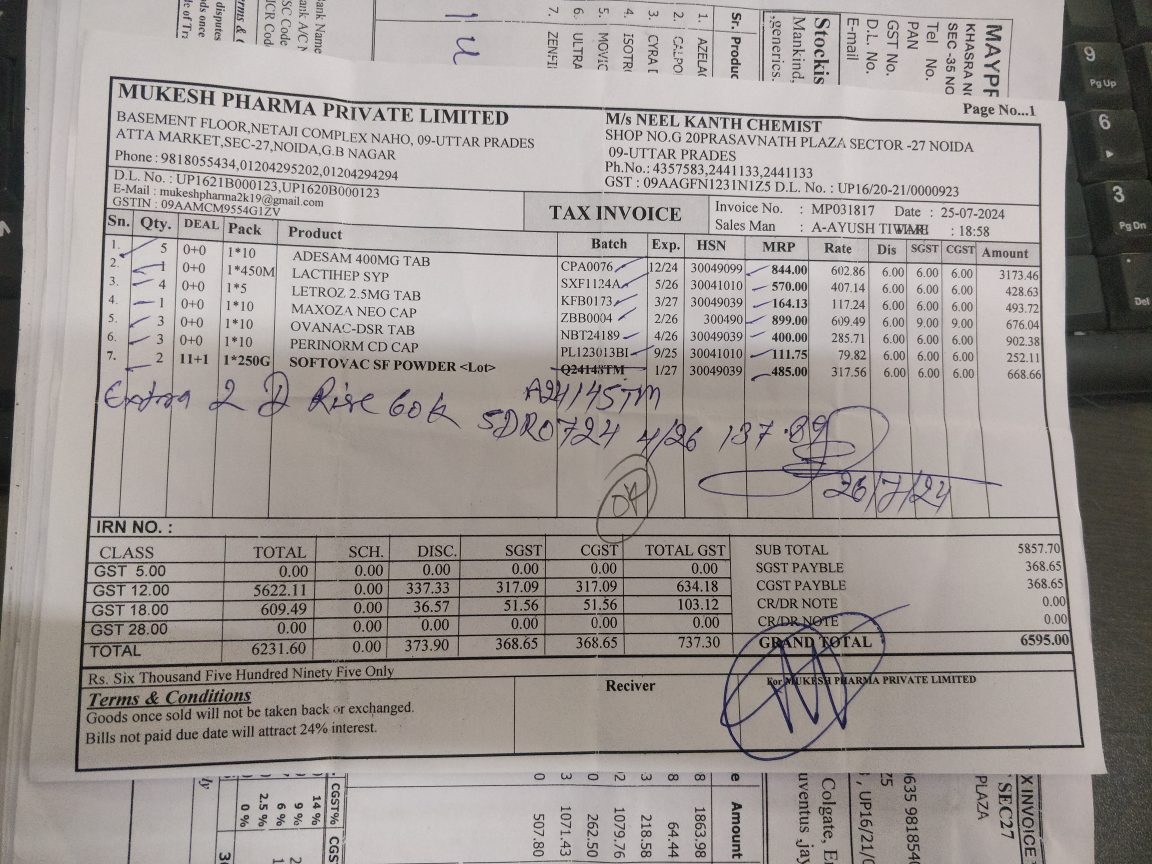 MUKESH PHARMA PRIVATE LIMITED
BASEMENT FLOOR,NETAJI COMPLEX NAHO, 09-UTTAR PRADES
ATTA MARKET,SEC-27,NOIDA,G.B NAGAR
Phone : 9818055434,01204295202,01204294294
D.L. No. : UP1621B000123,UP1620B000123
E-Mail : mukeshpharma2k19@gmail.com
GSTIN : 09AAMCM9554G1ZV
Page No...1
M/s NEEL KANTH CHEMIST
SHOP NO.G 20PRASAVNATH PLAZA SECTOR -27 NOIDA
09-UTTAR PRADES
Ph.No.: 4357583,2441133,2441133
GST : 09AAGFN1231N1Z5 D.L. No. : UP16/20-21/0000923
TAX INVOICE
Invoice No. : MP031817 Date : 25-07-2024
Sales Man : A-AYUSH TIWARI : 18:58
Sn. Qty. DEAL Pack Product Batch Exp. HSN MRP Rate Dis SGST CGST Amount
1. 5 0+0 1*10 ADESAM 400MG TAB CPA0076 12/24 30049099 844.00 602.86 6.00 6.00 6.00 3173.46
2. 1 0+0 1*450M LACTIHEP SYP SXF1124A 5/26 30041010 570.00 407.14 6.00 6.00 6.00 428.63
3. 4 0+0 1*5 LETROZ 2.5MG TAB KFB0173 3/27 30049039 164.13 117.24 6.00 6.00 6.00 493.72
4. 1 0+0 1*10 MAXOZA NEO CAP ZBB0004 2/26 300490 899.00 609.49 6.00 9.00 9.00 676.04
5. 3 0+0 1*10 OVANAC-DSR TAB NBT24189 4/26 30049039 400.00 285.71 6.00 6.00 6.00 902.38
6. 3 0+0 1*10 PERINORM CD CAP PL123013BI 9/25 30041010 111.75 79.82 6.00 6.00 6.00 252.11
7. 2 11+1 1*250G SOFTOVAC SF POWDER <Lot> Q24148TM 1/27 30049039 485.00 317.56 6.00 6.00 6.00 668.66
A24145TM
Extra 2 D Rise 60k SDR0724 4/26 137.89
26/7/24
OK
IRN NO. :
CLASS TOTAL SCH. DISC. SGST CGST TOTAL GST
GST 5.00 0.00 0.00 0.00 0.00 0.00 0.00
GST 12.00 5622.11 0.00 337.33 317.09 317.09 634.18
GST 18.00 609.49 0.00 36.57 51.56 51.56 103.12
GST 28.00 0.00 0.00 0.00 0.00 0.00 0.00
TOTAL 6231.60 0.00 373.90 368.65 368.65 737.30
SUB TOTAL 5857.70
SGST PAYBLE 368.65
CGST PAYBLE 368.65
CR/DR NOTE 0.00
CR/DR NOTE 0.00
GRAND TOTAL 6595.00
Rs. Six Thousand Five Hundred Ninety Five Only
Terms & Conditions
Goods once sold will not be taken back or exchanged.
Bills not paid due date will attract 24% interest.
Reciver
For MUKESH PHARMA PRIVATE LIMITED
MAYPH
KHASRA N
SEC -35 NO
Tel No.
PAN
GST No.
D.L. No.
E-mail
Stockis
Mankind,
generics.
Sr. Produc
1. AZELA
2. CALPO
3. CYRA
4. ISOTR
5. MOVIC
6. ULTRA
7. ZENFI
Bank Name
disputes
9 Pg Up
6
3 Pg Dn
Del
CGST%
14 %
9 %
6 %
2.5 %
0 %
Amount
1863.98
64.44
218.58
1079.76
262.50
1071.43
507.80
Colgate,
X INVOICE
SEC27
PLAZA